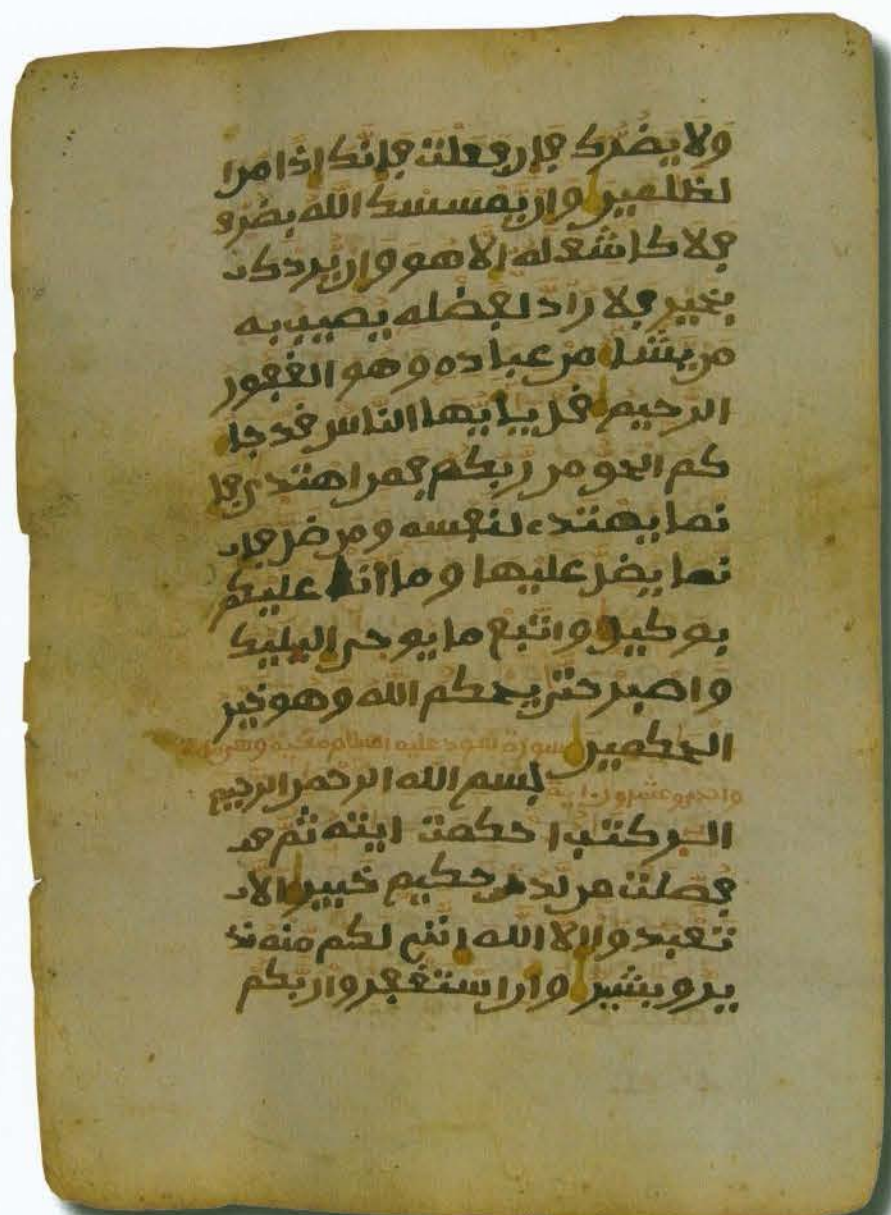 ولا يضرك فإن فعلت فإنك إذا من ا
لظلمين وإن يمسسك الله بضر و
فلا كاشف له إلا هو وإن يردك
بخير فلا راد لفضله يصيب به
من يشا من عباده وهو الغفور
الرحيم قل يايها الناس قد جا
كم الحق من ربكم فمن اهتدى فإ
نما يهتدے لنفسه ومن ضل فإ
نما يضل عليها وما أنا عليكم
بوكيل واتبع ما يوحى إليك
واصبر حتى يحكم الله وهو خير
الحكمين سورة هود عليه السلام مكية وهي
واحد وعشرون اية بسم الله الرحمن الرحيم
الر كتب احكمت ايته ثم
فصلت من لدن حكيم خبير الا
تعبدوا إلا الله إنني لكم منه نذ
ير وبشير وان استغفروا ربكم